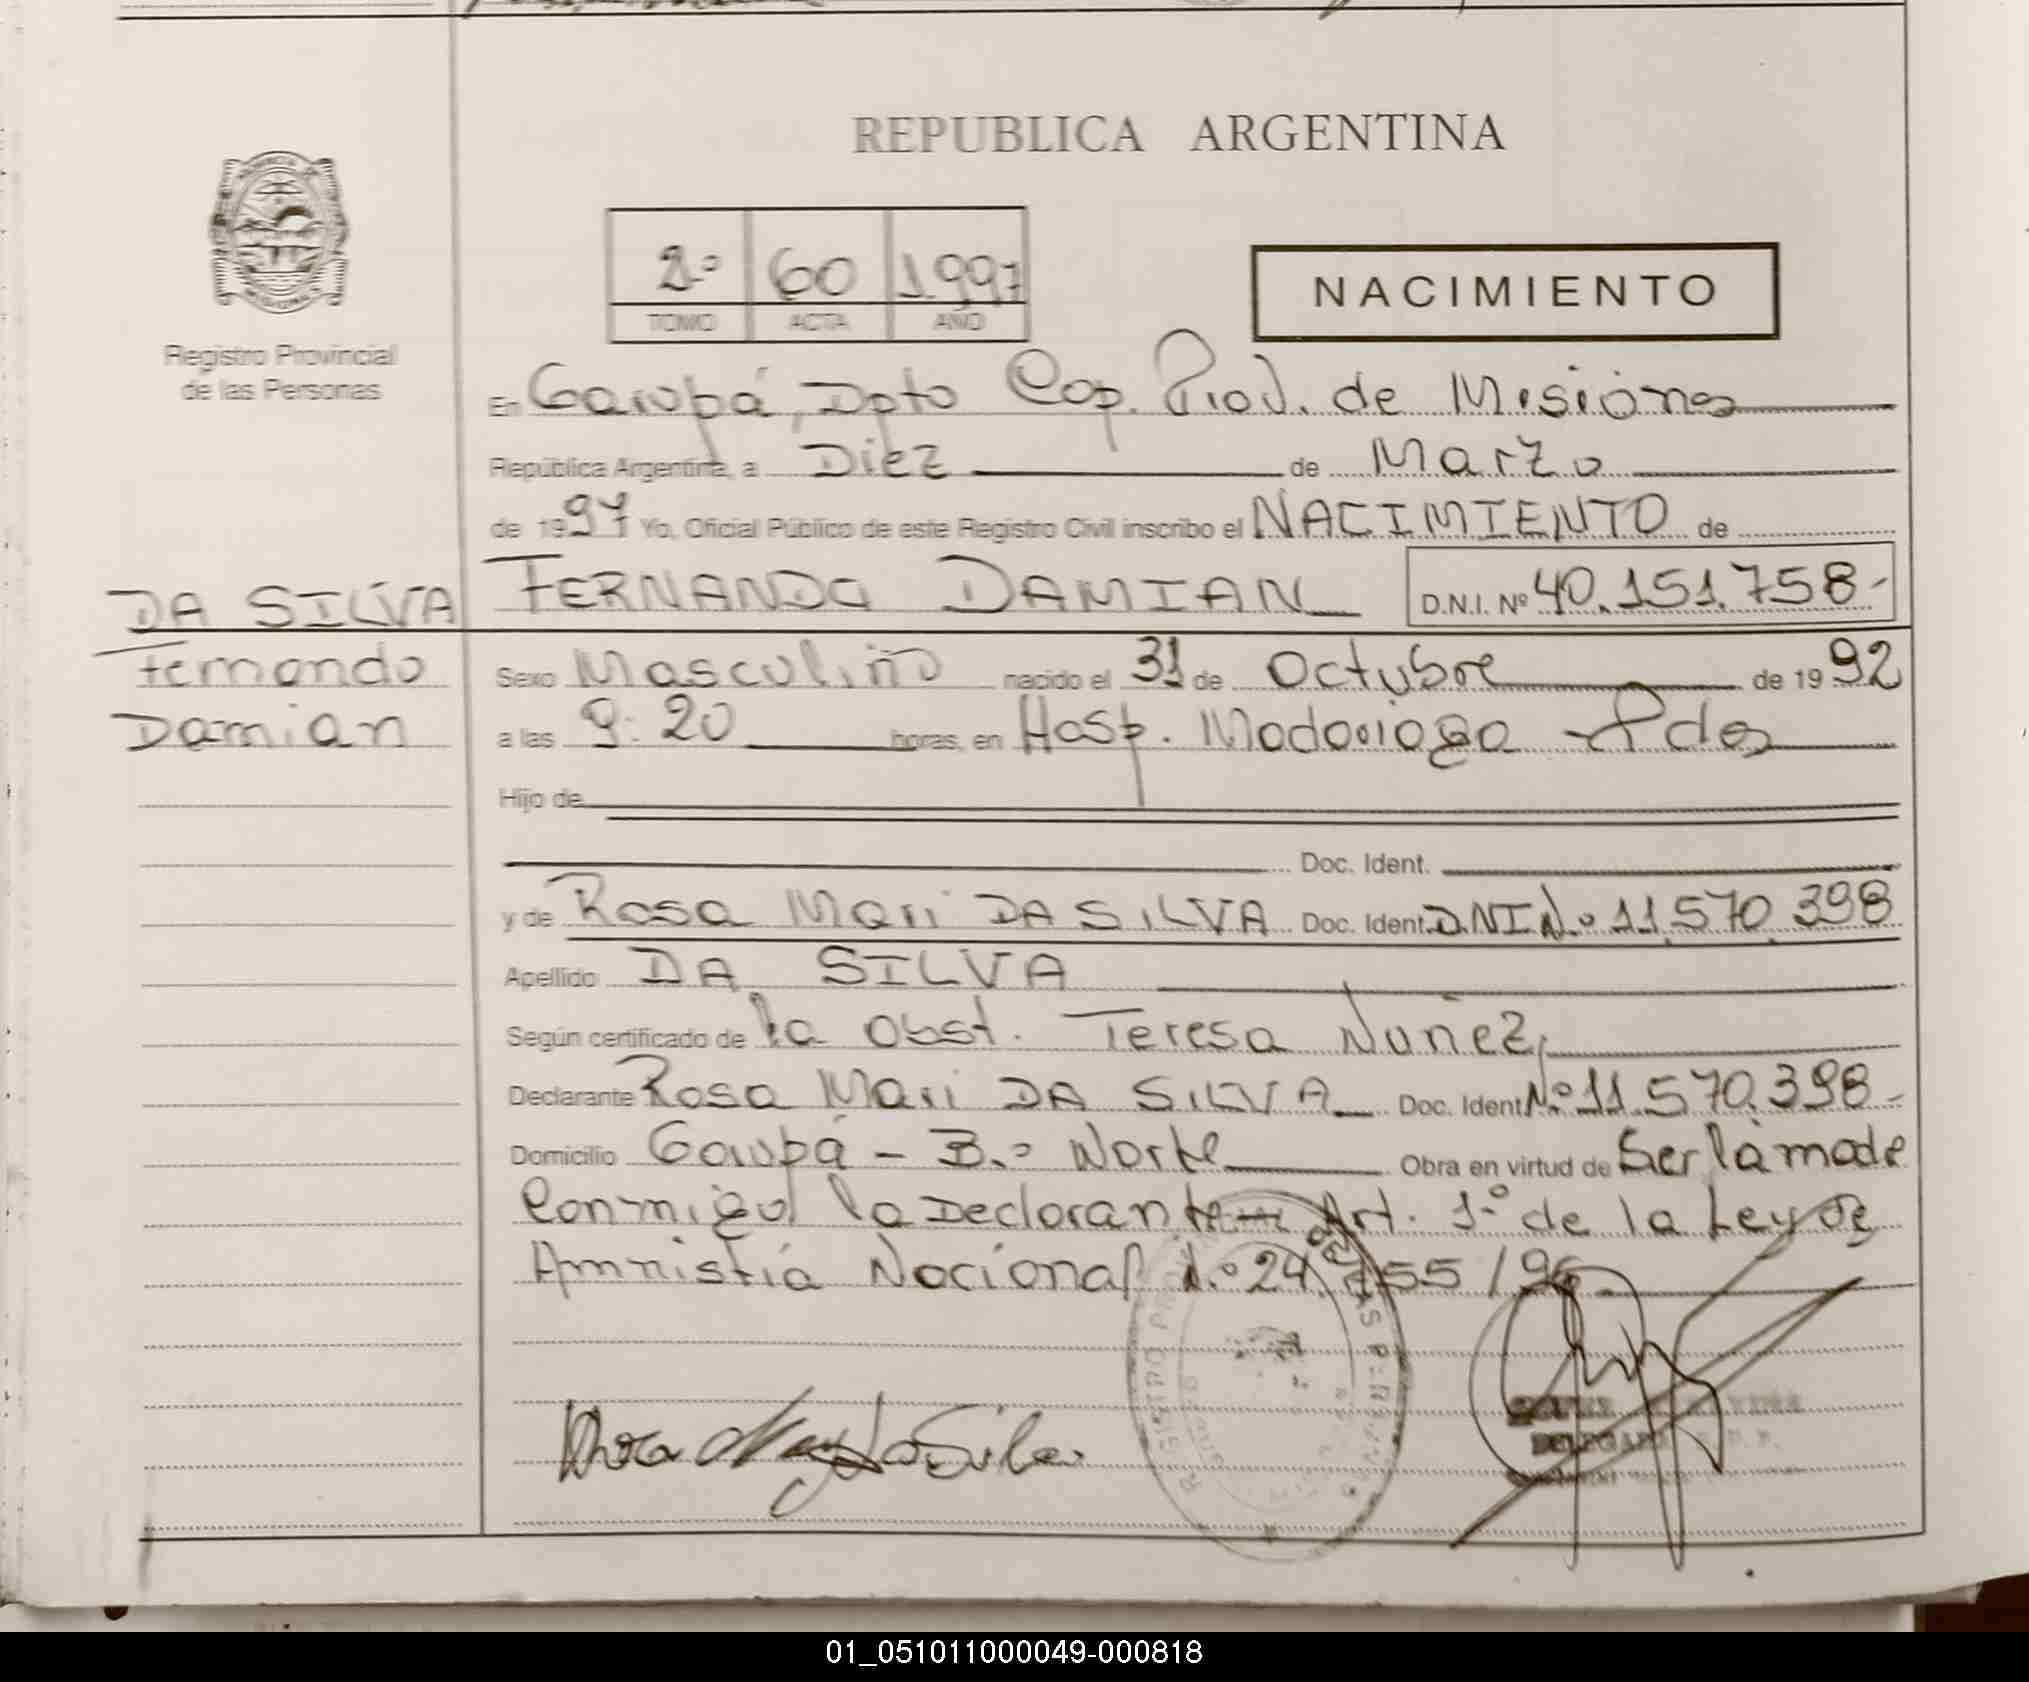 REPUBLICA ARGENTINA
2º 60 1997
TOMO ACTA AÑO
NACIMIENTO
Registro Provincial
de las Personas
En Garupá, Dpto Cap. Prov. de Misiones
República Argentina, a Diez de Marzo
de 1997 Yo, Oficial Público de este Registro Civil inscribo el NACIMIENTO de
DA SILVA
Fernando
Damian
FERNANDO DAMIAN D.N.I. Nº 40.151.758-
Sexo Masculino nacido el 31 de Octubre de 1992
a las 9:20 horas, en Hosp. Madariaga - Pdas
Hijo de
Doc. Ident.
y de Rosa Mari DA SILVA Doc. Ident. D.N.I Nº 11.570.398
Apellido DA SILVA
Según certificado de la Obst. Teresa Nuñez,
Declarante Rosa Mari DA SILVA Doc. Ident Nº 11.570.398-
Domicilio Garupá - Bº Norte Obra en virtud de Ser la madre
Conmigo la Declorante Art. 1º de la Ley de
Amnistía Nacional Nº 24.755/96
01_051011000049-000818